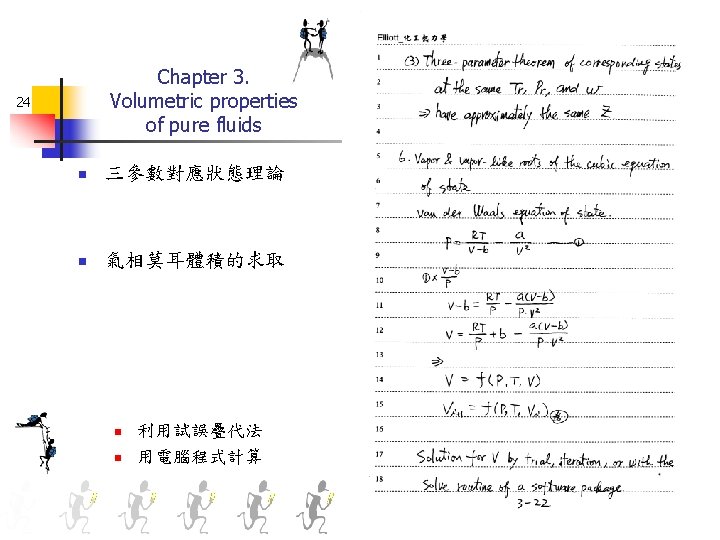 24
Chapter 3.
Volumetric properties
of pure fluids
三參數對應狀態理論
氣相莫耳體積的求取
利用試誤疊代法
用電腦程式計算
Elliott_化工熱力學
1 (3) Three-parameter theorem of corresponding states
2 at the same Tr, Pr, and w
3 ⇒ have approximately the same Z
4
5 6. Vapor & vapor-like roots of the cubic equation
6 of state
7 van der Waals equation of state.
8 P = RT/(V-b) - a/V² —①
9
10 ① × (V-b)/P
11 V-b = RT/P - a(V-b)/(P·V²)
12 V = RT/P + b - a(V-b)/(P·V²)
13 ⇒
14 V = f(P, T, V)
15 Vi+1 = f(P, T, Vi)
16
17 Solution for V by trial, iteration, or with the
18 solve routine of a software package
3-22